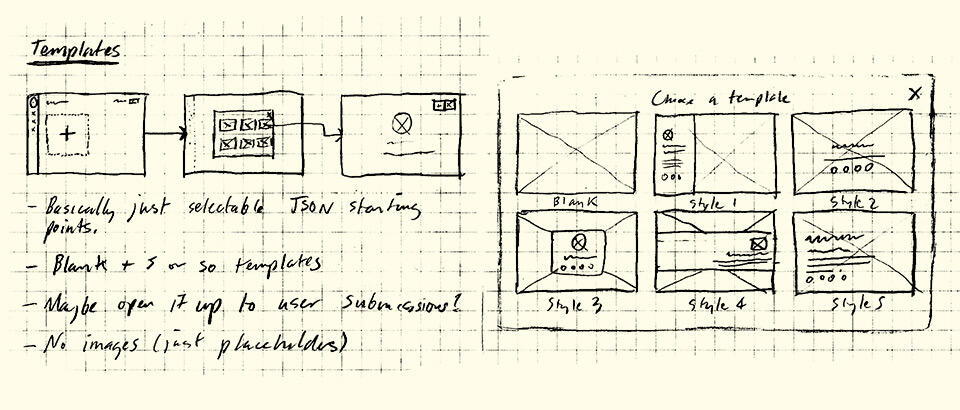 Templates
- Basically just selectable JSON starting
points.
- Blank + 5 or so templates
- Maybe open it up to user submissions?
- No images (just placeholders)
Choose a template
X
Blank
Style 1
Style 2
Style 3
Style 4
Style 5